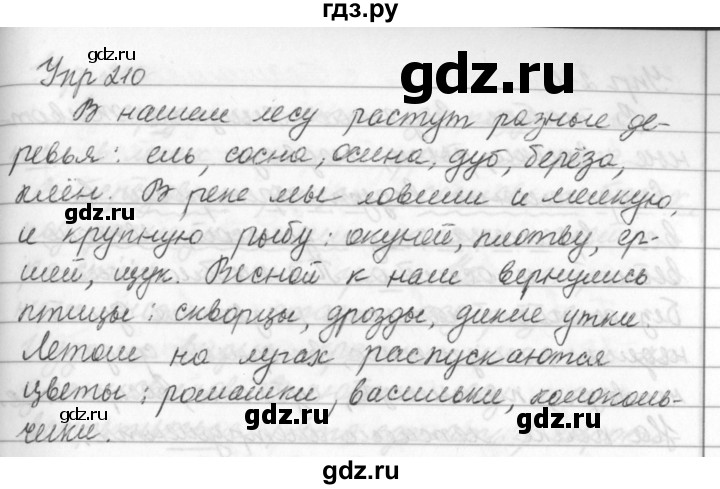 гдз.ру
gdz.ru
gdz.ru
Упр 210
В нашем лесу растут разные де-
ревья: ель, сосна, осина, дуб, берёза,
клён. В реке мы ловили и мелкую,
gdz.ru
и крупную рыбу: окуней, плотву, ер-
шей, щук. Весной к нам вернулись
gdz.ru
gdz.ru
птицы: скворцы, дрозды, дикие утки.
Летом на лугах распускаются
цветы: ромашки, васильки, колоколь-
чики.
gdz.ru
gdz.ru
gdz.ru
gdz.ru